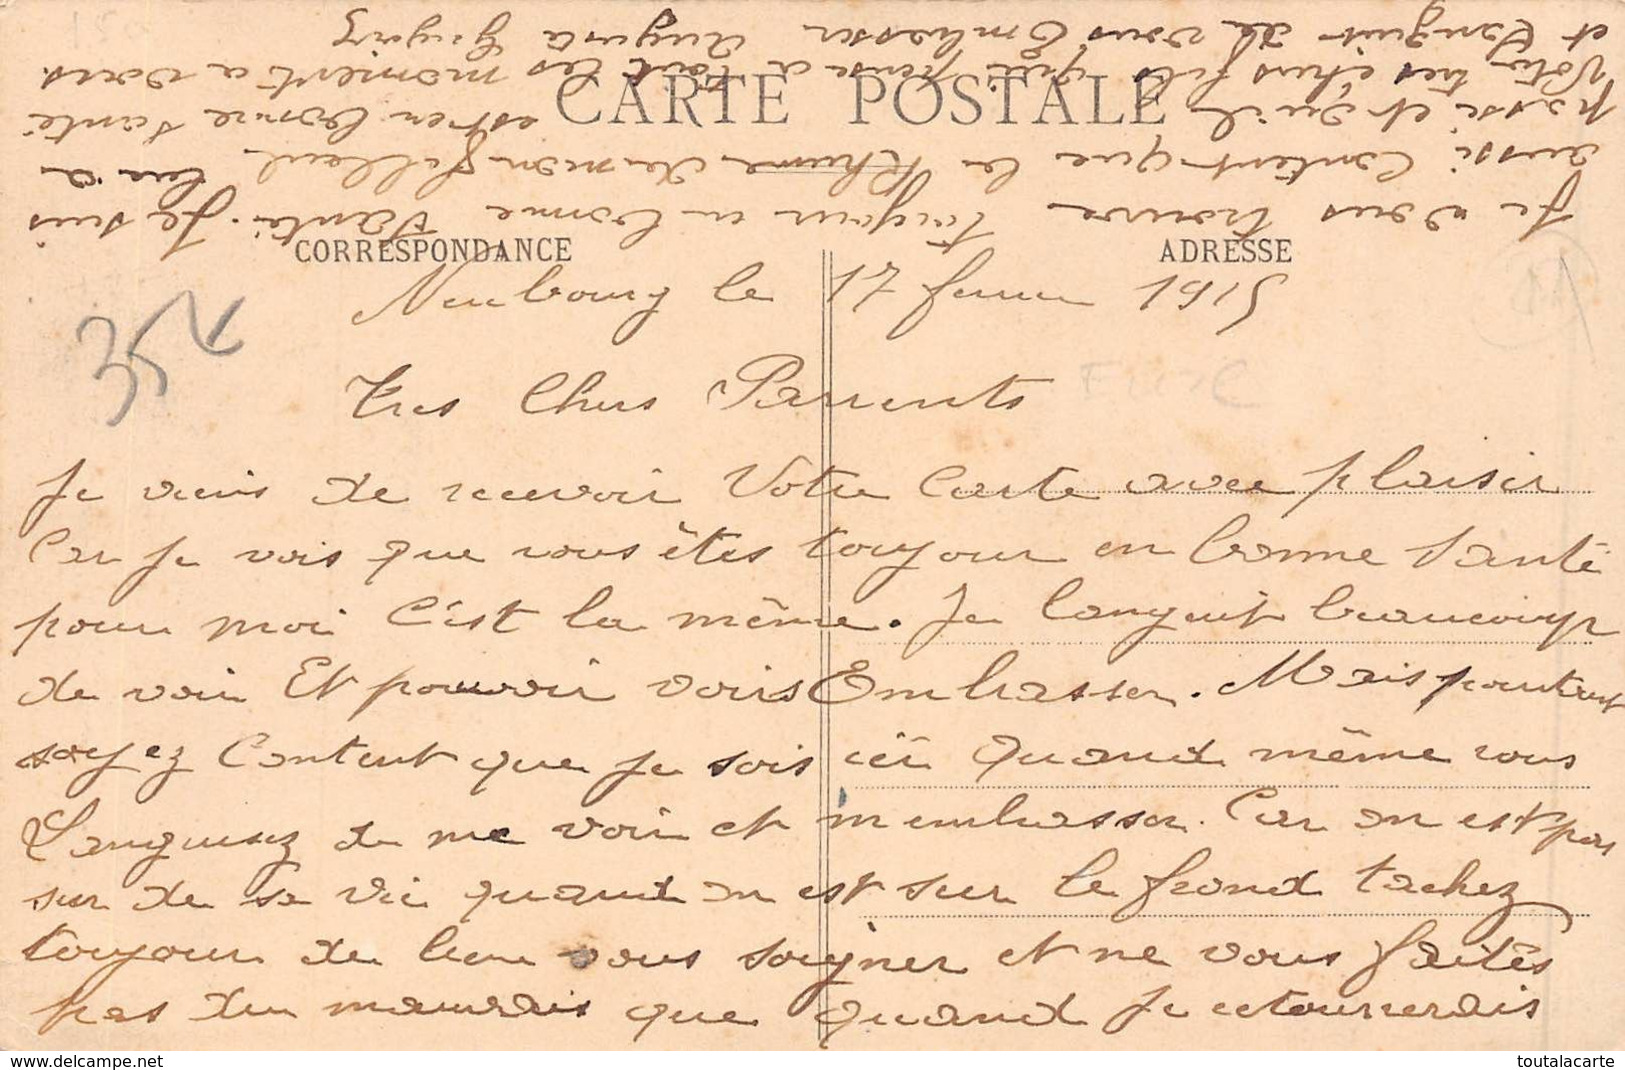 CARTE POSTALE
CORRESPONDANCE
ADRESSE
Neubourg le 17 fevrier 1915
Tres Chers Parents
Je viens de recevoir Votre Carte avec plaisir
Car je vois que vous êtes toujour en bonne santé
pour moi C'est la même. Je languit beaucoup
de voir Et pouvoir vous Embrasser. Mais pourtant
soyez Content que je sois ici quand même vous
Languisez de me voir et m'embrasser. Car on est pas
sur de sa vie quand on est sur le frond tachez
toujour de bien vous soigner et ne vous faites
pas du mauvais que quand je retournerais
Je vous trouve toujour en bonne santé. Je suis
aussi Content que le Rhume de mon filleul lui a
passé et qu'il est en bonne santé
Votre tres chers fils qui pense a tout les moment a vous
et languit de vous Embrasser
35
toutalacarte